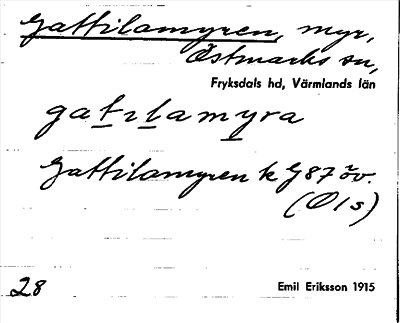 Gattilamyren, myr,
Östmarks sn,
Fryksdals hd, Värmlands län
gatılamyra
Gattilamyren k G87 öv.
(Ols)
28 Emil Eriksson 1915